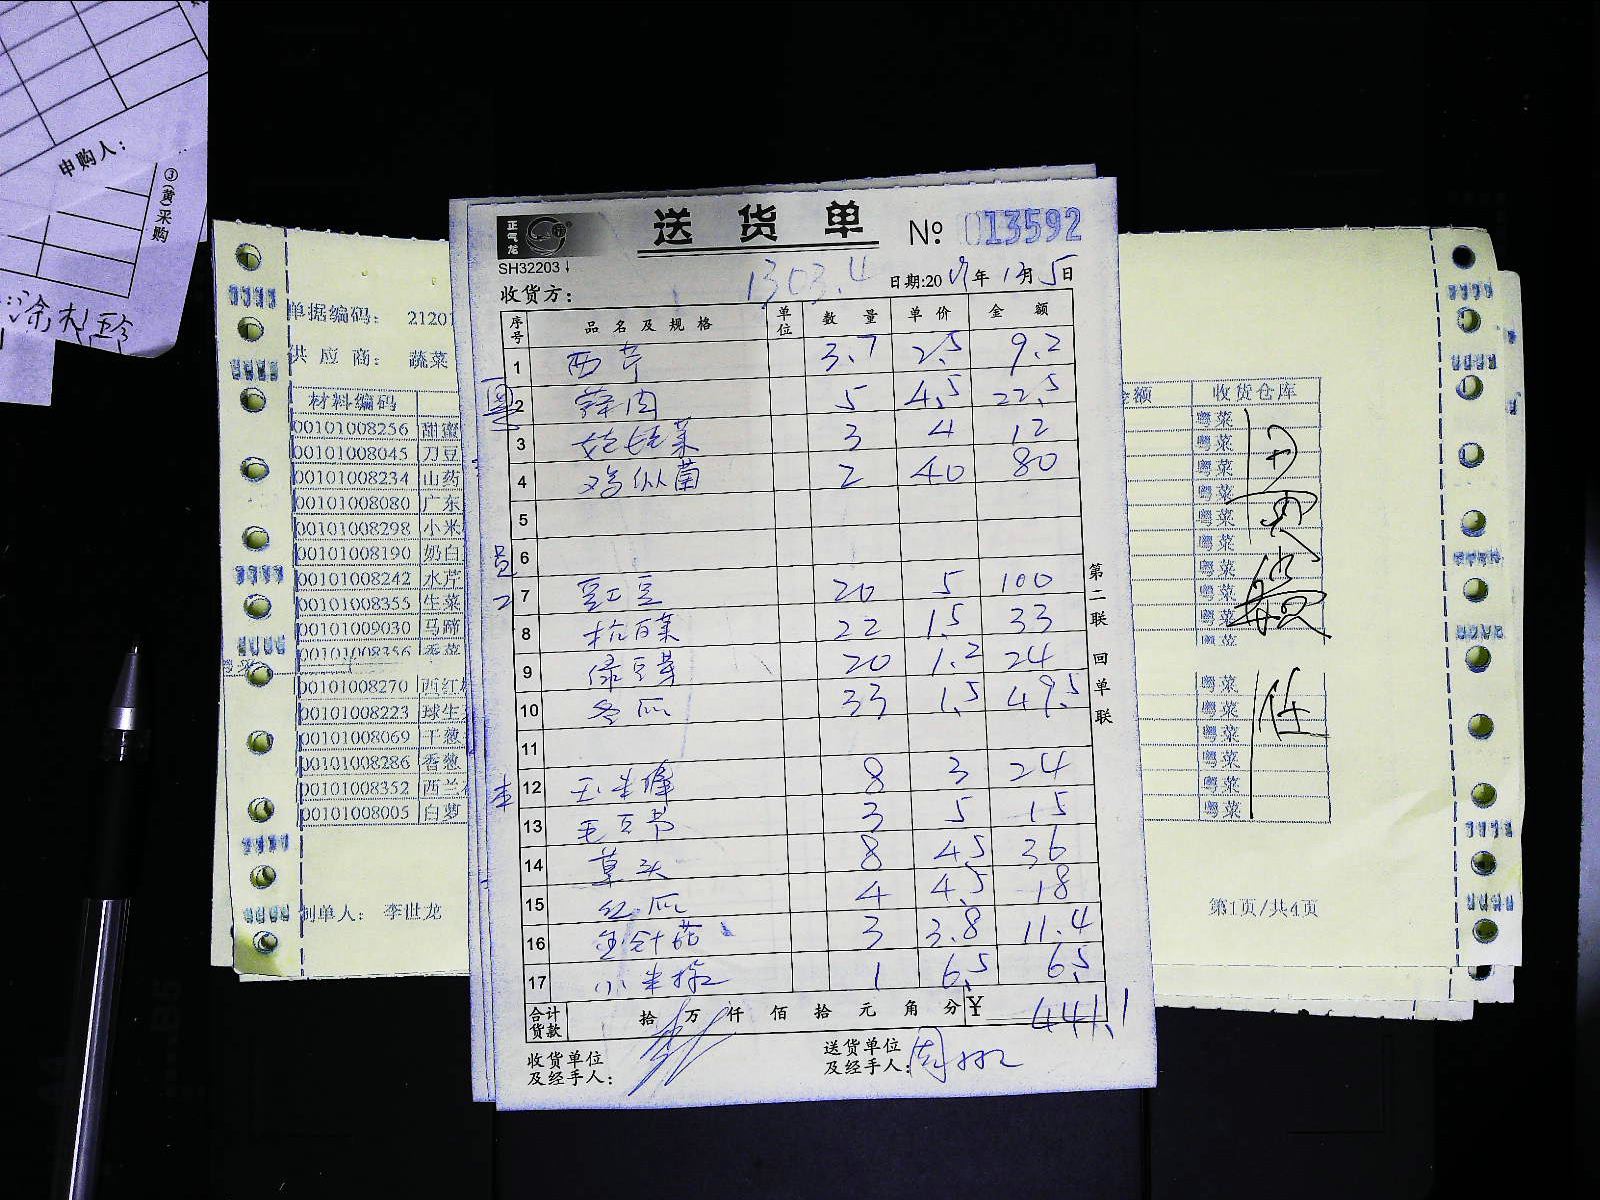 申购人：
③(黄)采购
正气龙
送货单 № 013592
SH32203
1303.4
日期:2017年1月5日
收货方：
序号 品名及规格 单位 数量 单价 金额
1 西芹 3.7 2.5 9.2
2 蒜肉 5 4.5 22.5
3 娃娃菜 3 4 12
4 鸡枞菌 2 40 80
5
6
7 豆江豆 20 5 100
8 杭白菜 22 1.5 33
9 绿豆芽 20 1.2 24
10 冬瓜 33 1.5 49.5
11
12 玉米棒 8 3 24
13 毛豆节 3 5 15
14 草头 8 4.5 36
15 红瓜 4 4.5 18
16 金针菇 3 3.8 11.4
17 小米椒 1 6.5 6.5
合计货款 拾万仟佰拾元角分 ¥ 441.1
收货单位及经手人：
送货单位及经手人：
第二联 回单联
单据编码： 21201
供应商： 蔬菜
材料编码
00101008256 甜蜜
00101008045 刀豆
00101008234 山药
00101008080 广东
00101008298 小米
00101008190 奶白
00101008242 水芹
00101008355 生菜
00101009030 马蹄
00101008356 香菜
00101008270 西红
00101008223 球生
00101008069 干葱
00101008286 香葱
00101008352 西兰
00101008005 白萝
制单人： 李世龙
金额 收货仓库
粤菜
粤菜
粤菜
粤菜
粤菜
粤菜
粤菜
粤菜
粤菜
粤菜
粤菜
粤菜
粤菜
粤菜
粤菜
粤菜
第1页/共4页